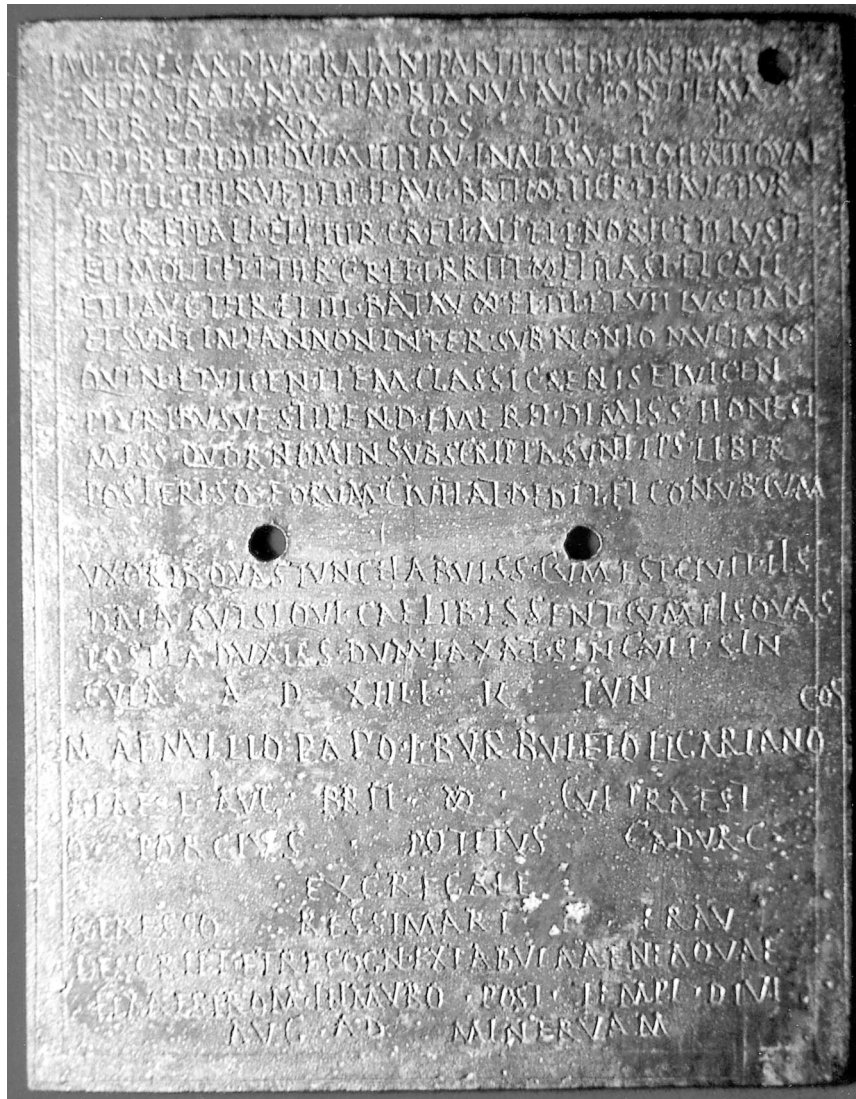 IMP CAESAR DIVI TRAIANI PARTHIC F DIVI NERVAE
NEPOS TRAIANVS HADRIANVS AVG PONTIF MAX
TRIB POT XIX COS III P P
EQVIT ET PEDIT QVI MILITAV IN ALIS V ET COH XIII QVAE
APPELL I THR VET ET I FL AVG BRIT ∞ ET I C R ET I AVG ITVR
ET I ALP ET I THR C R ET II ALP ET I NORIC ET III LVSIT
ET I MONT ET I THR G ET ∞ ET CALL
ET II AVG THR ET III BATAV ∞ ET
ET SVNT IN PANNON INFER SVB NONIO MVCIANO
QVIN ET VICEN ITEM CLASSIC SENIS ET VICEN
PLVRIBVSVE STIPEND EMERIT DIMISS HONEST
MISS QVOR NOMIN SVBSCRIPTA SVNT IPS LIBER
POSTERISQ EORVM CIVITAT DEDIT ET CONVB CVM
VXORIB QVAS TVNC HABVISS CVM EST CIVIT IIS
DATA AVT SI QVI CAELIB ESSENT CVM IIS QVAS
POSTEA DVXISS DVMTAXAT SINGVLI SIN
GVLAS A D XIIII K IVN COS
M AEMILIO PAPO L BVRBVLEIO LIGARIANO
ALAE I F AVG BRIT ∞ CVI PRAEST
Q PORCIVS POTITVS CADVRC
EX GREGALE
BERESSO RESSIMARI F ERAV
DESCRIPT ET RECOGN EX TABVLA AENEA QVAE
FIXA EST ROM IN MVRO POST TEMPL DIVI
AVG AD MINERVAM